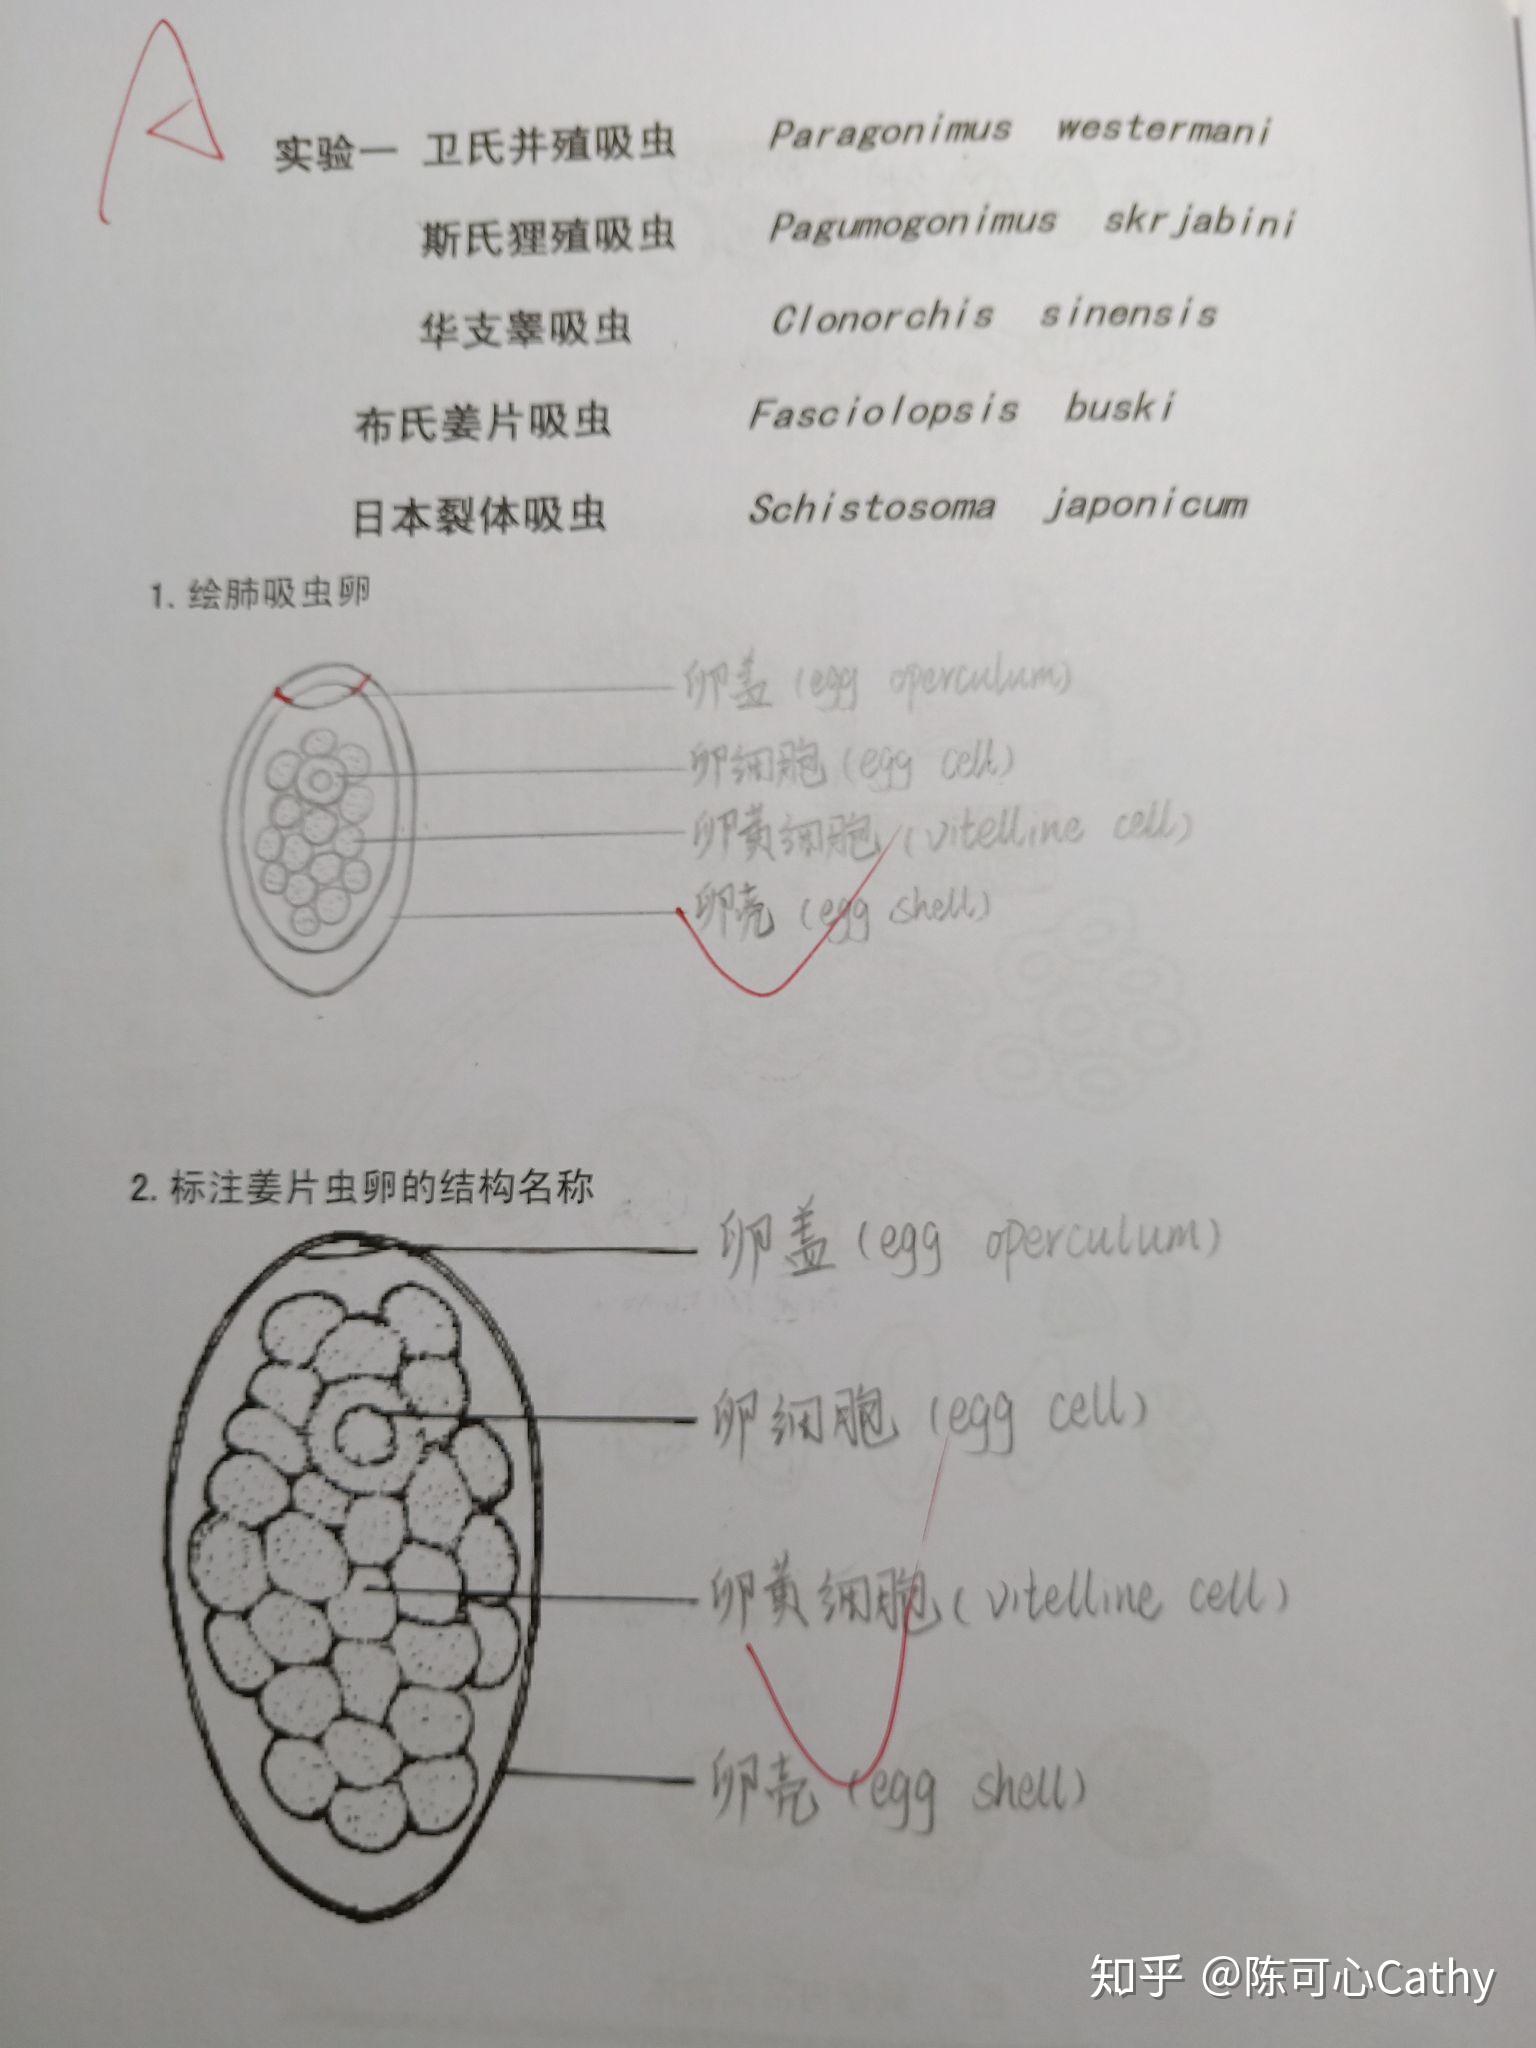 A
实验一 卫氏并殖吸虫 Paragonimus westermani
斯氏狸殖吸虫 Pagumogonimus skrjabini
华支睾吸虫 Clonorchis sinensis
布氏姜片吸虫 Fasciolopsis buski
日本裂体吸虫 Schistosoma japonicum
1. 绘肺吸虫卵
卵盖 (egg operculum)
卵细胞 (egg cell)
卵黄细胞 (vitelline cell)
卵壳 (egg shell)
2. 标注姜片虫卵的结构名称
卵盖 (egg operculum)
卵细胞 (egg cell)
卵黄细胞 (vitelline cell)
卵壳 (egg shell)
知乎 @陈可心Cathy